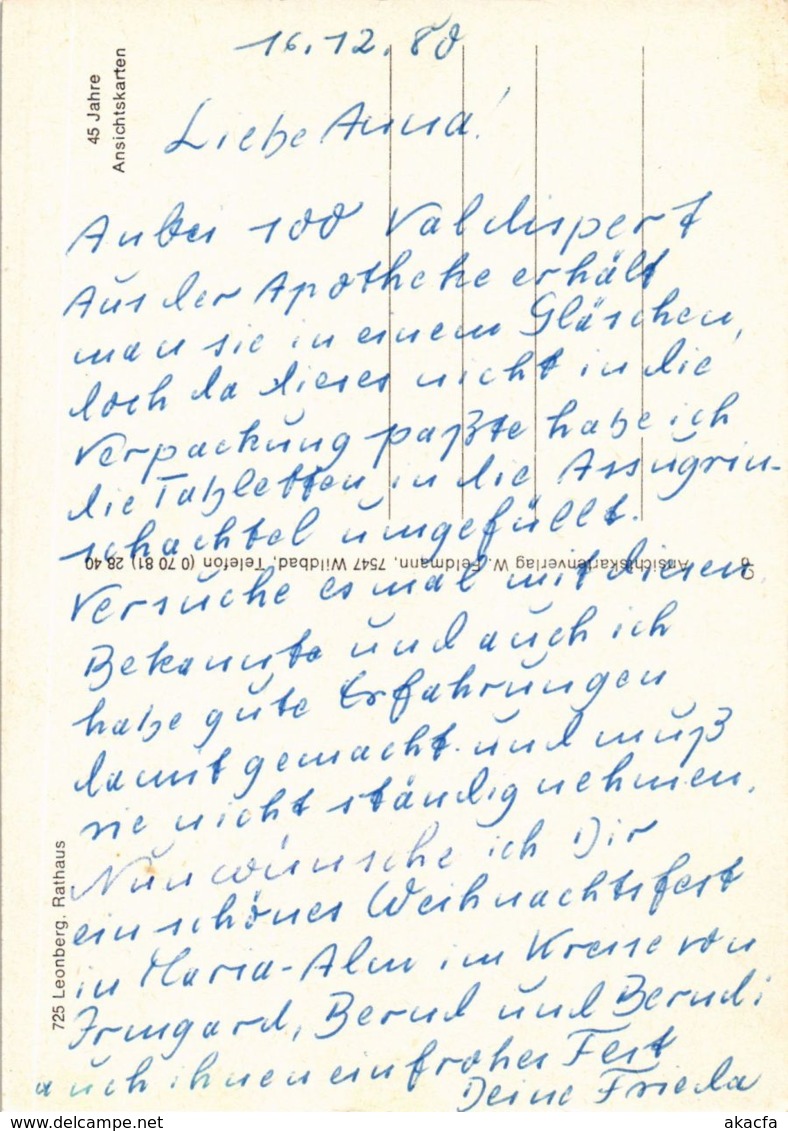 16.12.80
Liebe Anna!
Anbei 100 Valdispert
Aus der Apotheke erhält
man sie in einem Gläschen,
doch da dieses nicht in die
Verpackung paßte habe ich
die Tabletten in die Assugrin-
schachtel umgefüllt.
Versuche es mal mit diesen
Bekannte und auch ich
habe gute Erfahrungen
damit gemacht und muß
sie nicht ständig nehmen.
Nun wünsche ich Dir
ein schönes Weihnachtsfest
in Maria-Alm im Kreise von
Irmgard, Bernd und Berndi
auch ihnen ein frohes Fest
Deine Frieda
45 Jahre
Ansichtskarten
Ansichtskartenverlag W. Feldmann, 7547 Wildbad, Telefon (0 70 81) 28 40
725 Leonberg. Rathaus
akacfa
delcampe.net